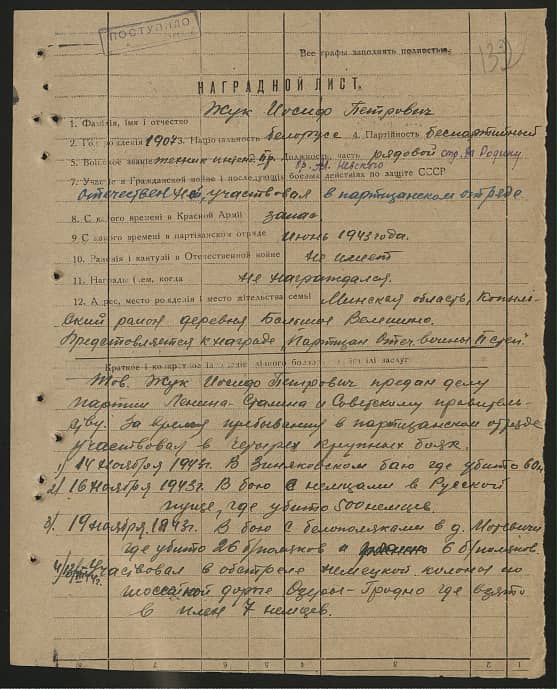 ПОСТУПИЛО
132
Все графы заполнять полностью.
НАГРАДНОЙ ЛИСТ.
1. Фамилія, імя і отчество Жук Иосифо Петрович
2. Год рожденія 1907 3. Національность белоруссе 4. Партійность беспартийный
5. Воінское званіе Должность, часть рядовой отр. За Родину
бр. Ал. Невского
7. Участіе в Гражданской войне і последующіх боевых действіях по защіте СССР
отечествен ной, участвовал в партизанском отряде
8. С какого времені в Красной Арміі запас
9 С какого времені в партізанском отряде июнь 1943 года.
10. Раненія і кантузіі в Отечественной войне Не имеет
11. Награжден, когда Не награждался.
12. Адрес, место рожденія і место жітельства семьі Минская область, Копыль-
ский район деревня Большое
Представляется к награде „Партизан Отеч. войны
Краткое і конкретное заслуг
Тов. Жук Иосифо Петрович предан делу
партии Ленина-Сталина и Советскому правитель-
ству. За время пребывания в партизанском отряде
участвовал в четырех крупных боях.
1) 14 ноября 1943г. В Зиняковском баю где убито
2). 16 ноября 1943г. В бою с немцами в Русской
пуще, где убито 500 немцев.
3). 19 ноября, 1943г. В бою с белополяками в д. Мотевичи
где убито 26 б/поляков а 6 б/поляков.
4) Участвовал в обстреле немецкой колоны по
шоссейной дороге Озеры-Гродно где взято
в плен 7 немцев.